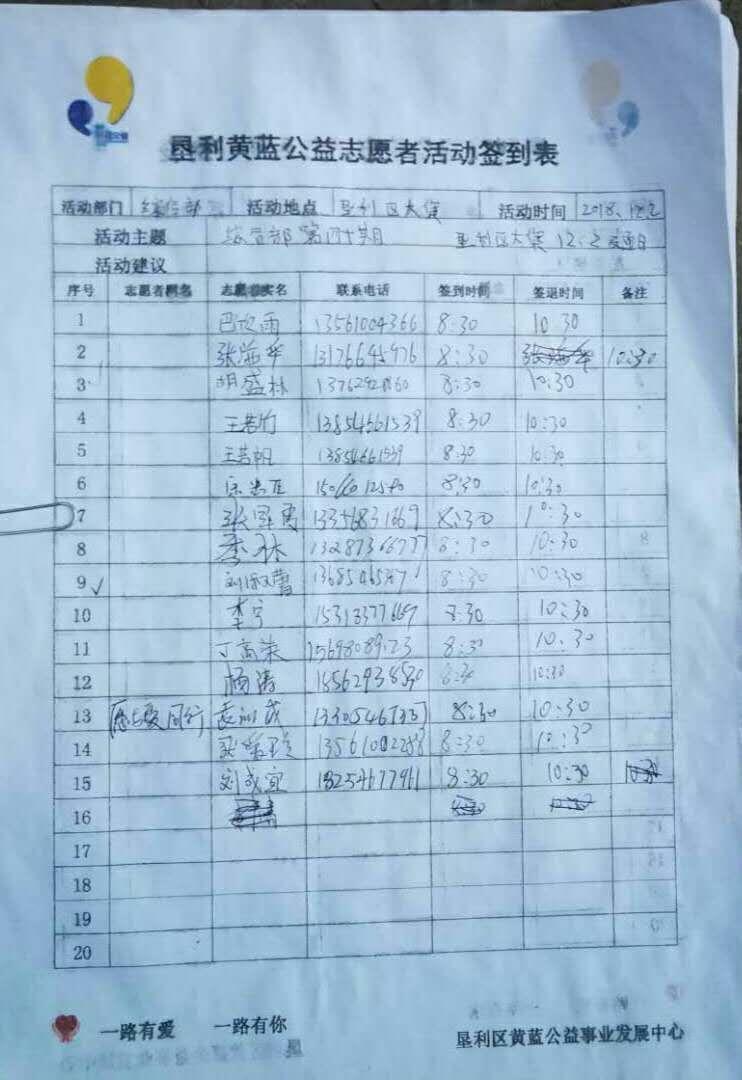 垦利黄蓝公益志愿者活动签到表
活动部门 综合部 活动地点 垦利区大集 活动时间 2018.12.2
活动主题 综合部第四十期 垦利区大集 12.2交通日
活动建议
序号 志愿者网名 志愿者实名 联系电话 签到时间 签退时间 备注
1 13561004366 8:30 10:30
2 张海华 13176645976 8:30 张海华 10:30
3 胡盛林 8:30 10:30
4 王若竹 13854661539 8:30 10:30
5 王若帆 13854661539 8:30 10:30
6 8:30 10:30
7 8:30 10:30
8 李林 13287366777 8:30 10:30
9 ✓ 刘淑蕾 8:30 10:30
10 李宁 8:30 10:30
11 丁高荣 8:30 10:30
12 杨涛 15562938530 8:30 10:30
13 同行 8:30 10:30
14 13561002288 8:30 10:30
15 刘成宜 18254677961 8:30 10:30
16
17
18
19
20
一路有爱 一路有你
垦利区黄蓝公益事业发展中心